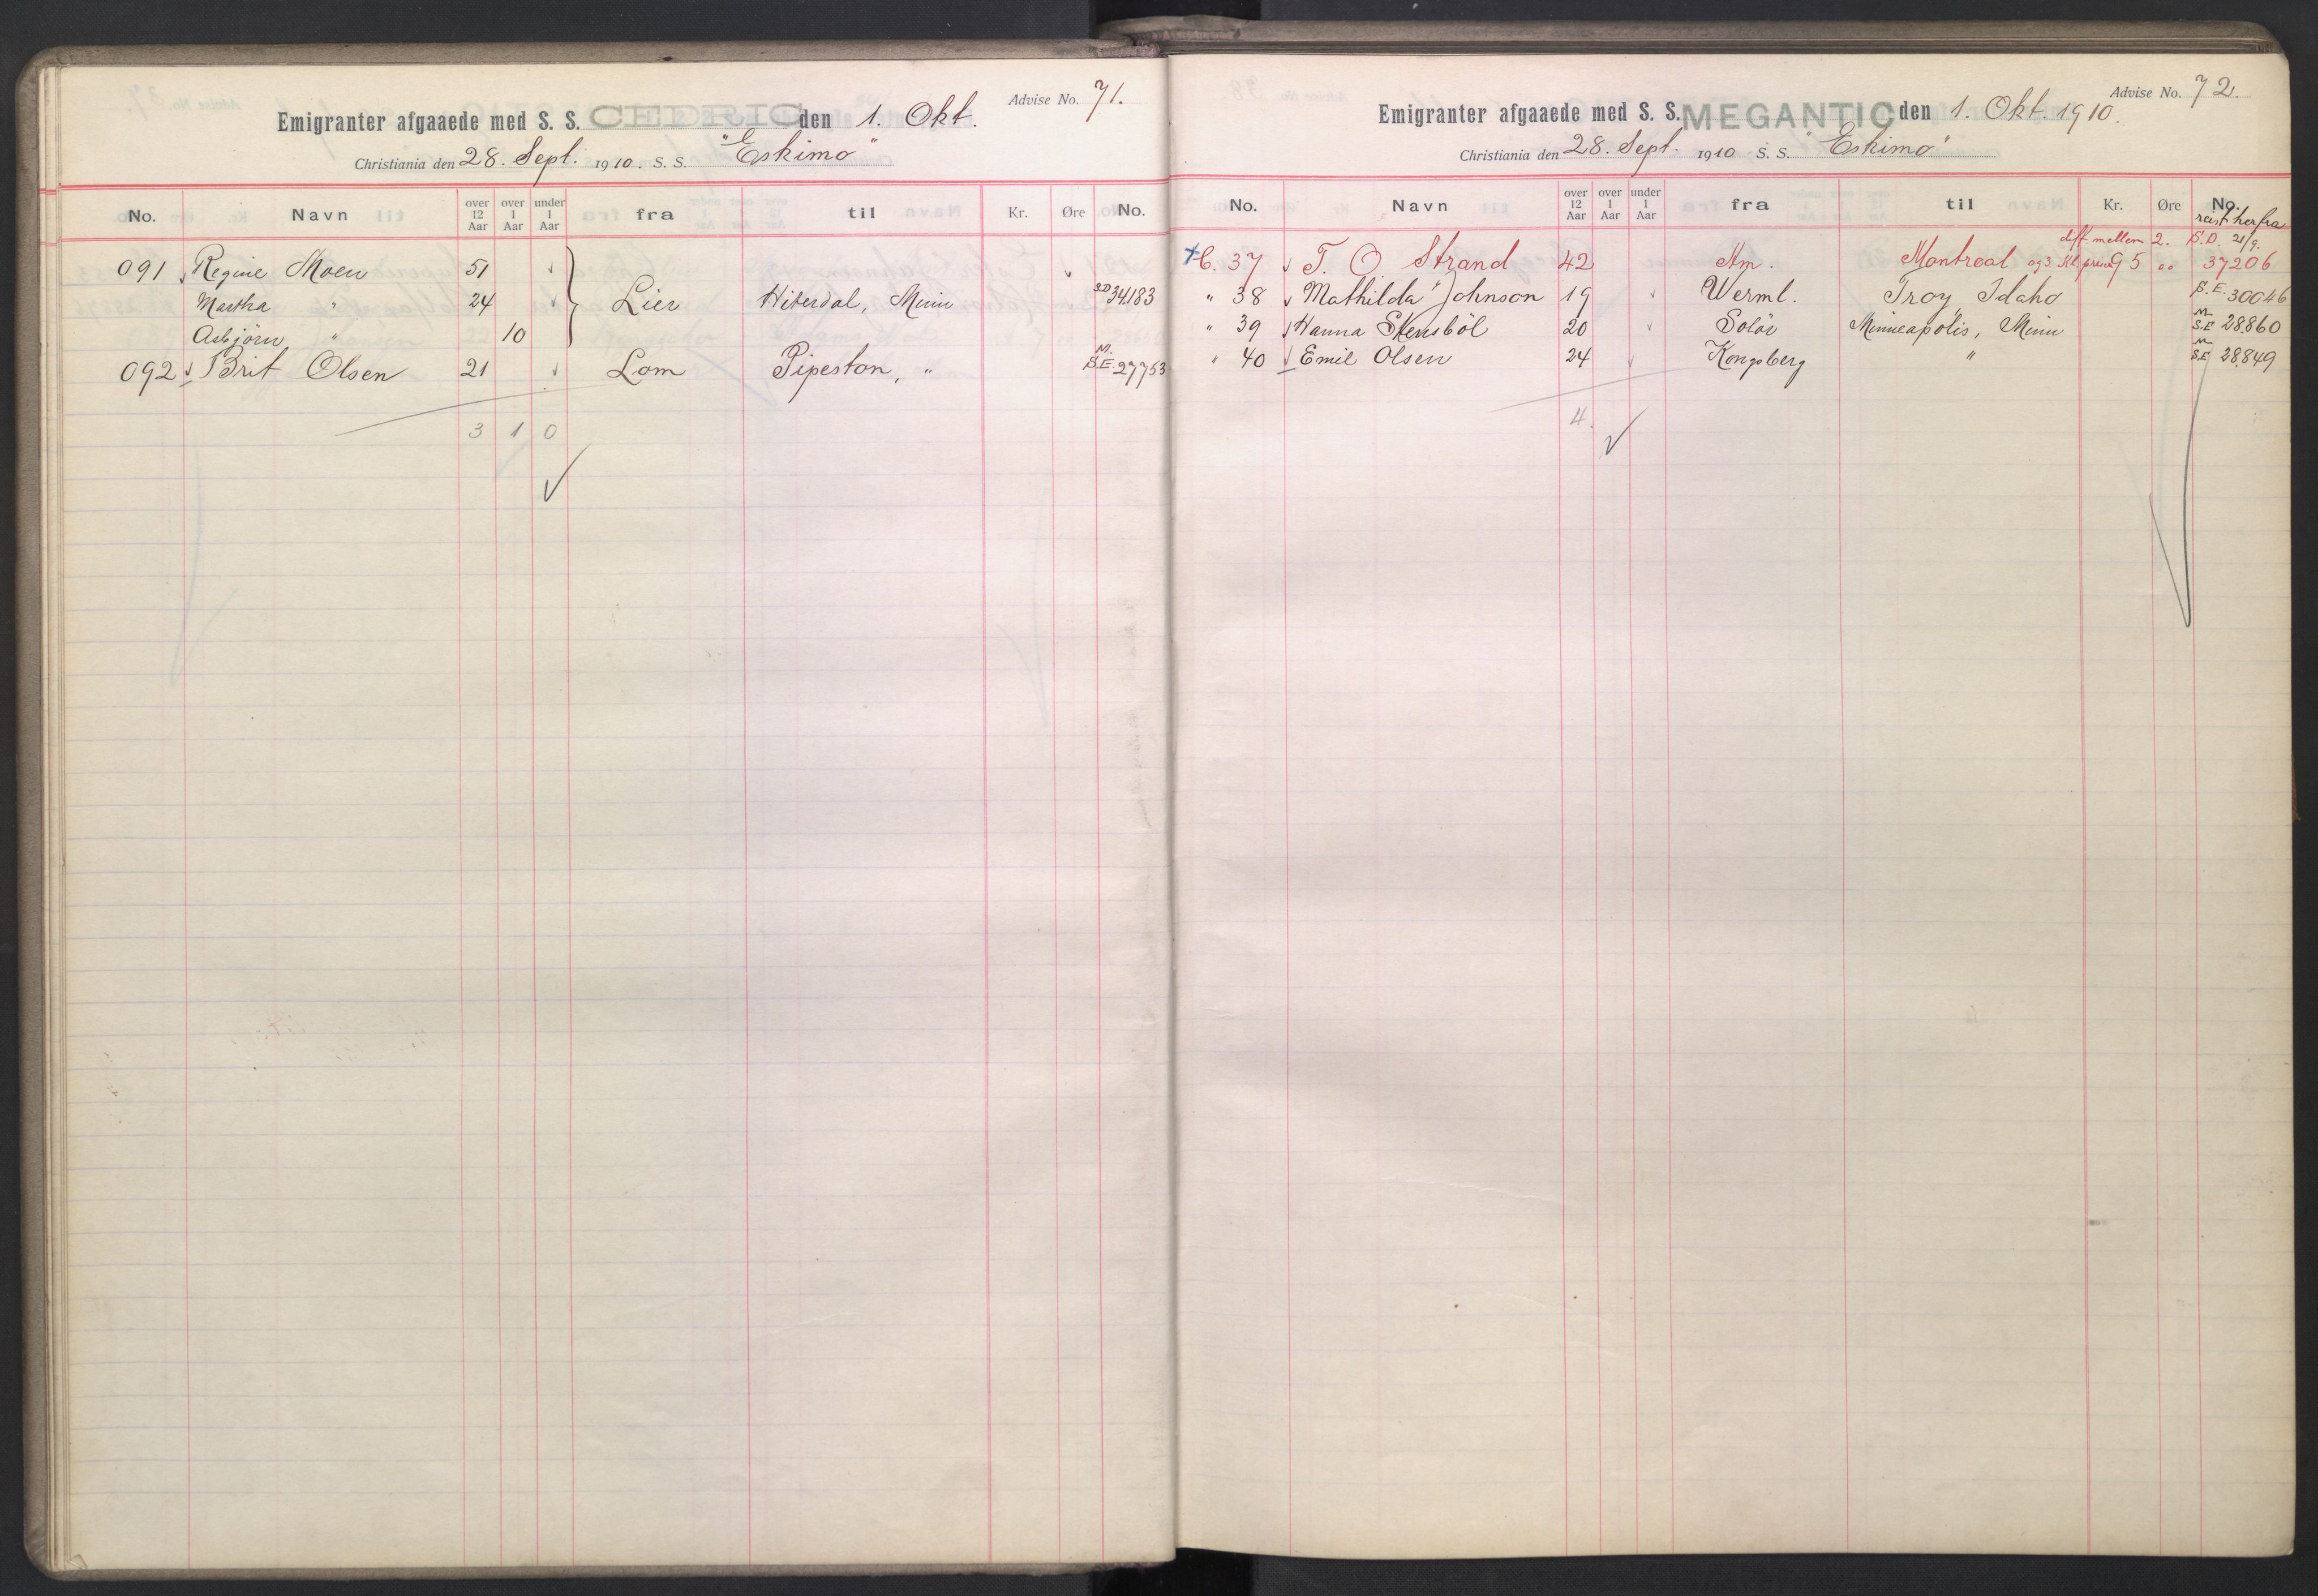 Advise No. 71.
Emigranter afgaaede med S. S. CEDRIC den 1. Okt.
Christiania den 28. Sept. 1910. S. S. "Eskimo"
No. Navn over 12 Aar over 1 Aar under 1 Aar fra til Kr. Øre No.
091 Regine Moen 51 Lier Hiterdal, Minn S.D 34183
Martha " 24
Asbjörn " 10
092 Brit Olsen 21 Lom Pipeston, " M. S.E. 27753
3 1 0
Advise No. 72.
Emigranter afgaaede med S. S. MEGANTIC den 1. Okt. 1910.
Christiania den 28. Sept. 1910 S. S. "Eskimo"
No. Navn over 12 Aar over 1 Aar under 1 Aar fra til Kr. Øre No.
reist herfra
diff. mellem 2. S.D. 21/9.
C. 37 T. O Strand 42 Am. Montreal og 3. Kl. 95 00 37206
" 38 Mathilda Johnson 19 Werml. Troy Idaho S.E. 30046
" 39 Hanna Stensböl 20 Solör Minneapolis, Minn M S.E 28860
" 40 Emil Olsen 24 Kongsberg " M S.E 28849
4